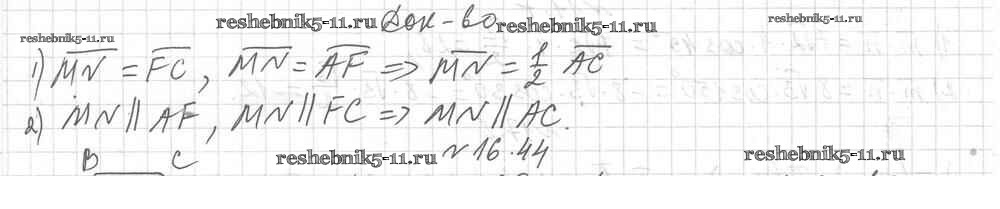 reshebnik5-11.ru Док-во reshebnik5-11.ru reshebnik5-11.ru
reshebnik5-11.ru
1) MN = FC, MN = AF => MN = 1/2 AC
2) MN || AF, MN || FC => MN || AC.
B C reshebnik5-11.ru N16.44 reshebnik5-11.ru